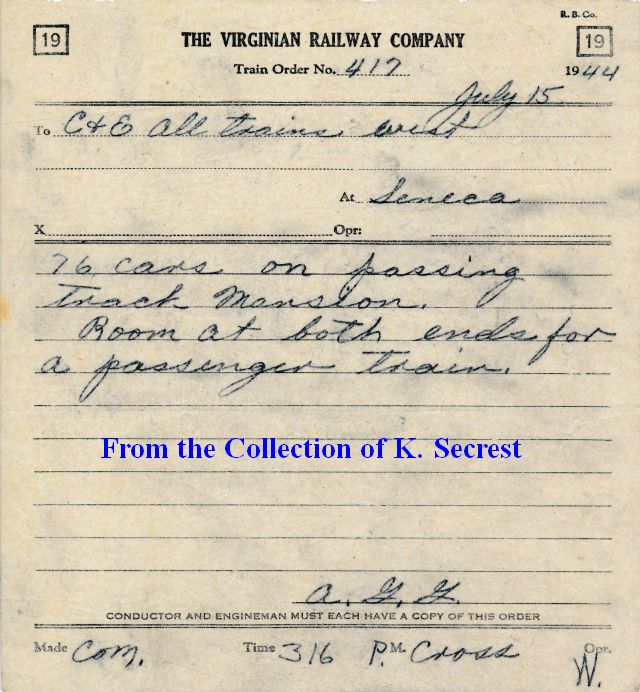 R. B. Co.
19 THE VIRGINIAN RAILWAY COMPANY 19
Train Order No. 417 1944
July 15
To C&E all trains west
At Seneca
X Opr:
76 cars on passing
track Mansion.
Room at both ends for
a passenger train.
From the Collection of K. Secrest
a. G. G.
CONDUCTOR AND ENGINEMAN MUST EACH HAVE A COPY OF THIS ORDER
Made Com. Time 316 P. M. Cross Opr.
W.